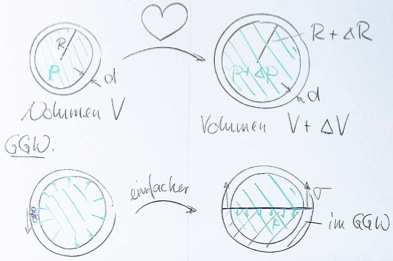 R
P
d
Volumen V
R + ΔR
P + ΔP
d
Volumen V + ΔV
GGW.
einfacher
σ
P
im GGW